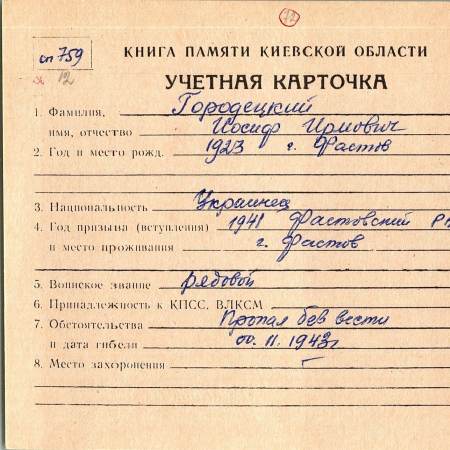 12
оп 759
12
КНИГА ПАМЯТИ КИЕВСКОЙ ОБЛАСТИ
УЧЕТНАЯ КАРТОЧКА
1. Фамилия, Городецкий
имя, отчество Иосиф Ирмович
2. Год и место рожд. 1923 г. Фастов
3. Национальность Украинец
4. Год призыва (вступления) 1941 Фастовский
и место проживания г. Фастов
5. Воинское звание рядовой
6. Принадлежность к КПСС, ВЛКСМ
7. Обстоятельства Пропал без вести
и дата гибели 00.11.1943г
8. Место захоронения —